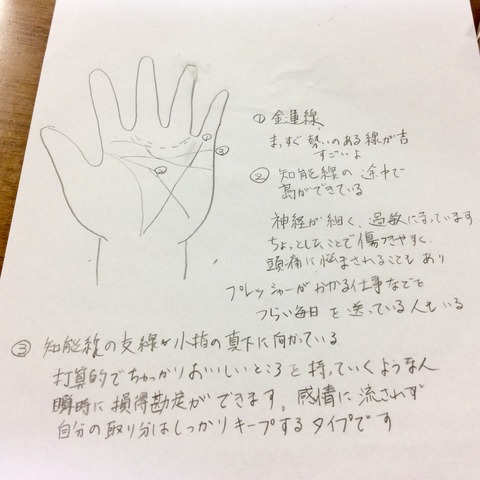 ①
③
②
① 金運線
まっすぐ 勢いのある線が吉
すごいよ
② 知能線の 途中で
島ができている
神経が細く、過敏になっています
ちょっとしたことで傷つきやすく、
頭痛に悩まされることもあり
プレッシャーがかかる仕事などを
つらい毎日を送っている人もいる
③ 知能線の支線が小指の真下に向かっている
打算的でちゃっかりおいしいところを持っていくような人
瞬時に損得勘定ができます。感情に流されず
自分の取り分はしっかりキープするタイプです